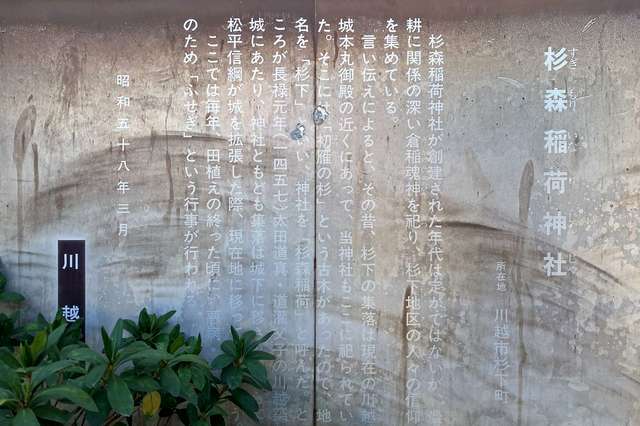 杉森稲荷神社
すぎ もり
じゃ
所在地 川越市杉下町
杉森稲荷神社が創建された年代は定かではないが、農
耕に関係の深い倉稲魂神を祀り、杉下地区の人々の信仰
を集めている。
言い伝えによると、その昔、杉下の集落は現在の川越
城本丸御殿の近くにあって、当神社もここに祀られてい
た。そこには「初雁の杉」という古木があったので、地
名を「杉下」といい、神社を「杉森稲荷」と呼んだ。と
ころが長禄元年(一四五七)太田道真・道灌父子の川越築
城にあたり、神社ともども集落は城下に移
松平信綱が城を拡張した際、現在地に移 う
ここでは毎年、田植えの終った頃に
のため「ふせぎ」という行事が行われ
昭和五十八年三月
川越